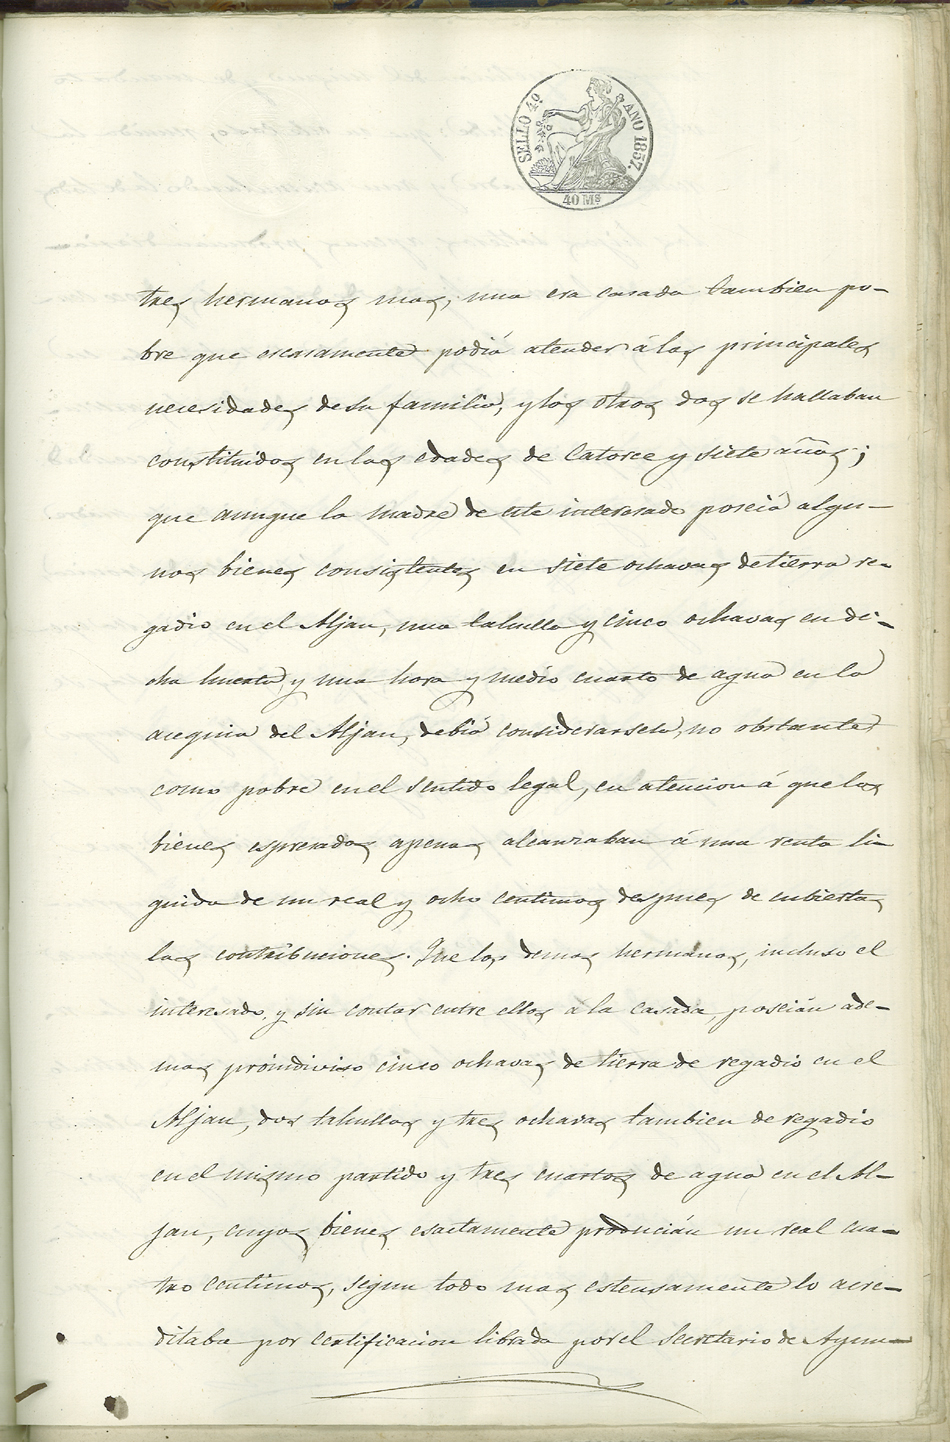 SELLO 4º AÑO 1857.
40 Ms
tres hermanos mas, una era casada tambien po-
bre que escasamente podia atender á las principales
necesidades de su familia, y los otros dos se hallaban
constituidos en las edades de catorce y siete años;
que aunque la madre de este interesado poseia algu-
nos bienes consistentes en siete ochavas de tierra re-
gadio en el Aljau, una tahulla y cinco ochavas en di-
cha huerta, y una hora y medio cuarto de agua en la
acequia del Aljau, debia considerarsele, no obstante
como pobre en el sentido legal, en atencion á que los
bienes espresados apenas alcanzaban á una renta li-
quida de un real y ocho centimos despues de cubiertas
las contribuciones. Que los demas hermanos, incluso el
interesado, y sin contar entre ellos a la casada poseian ade-
mas proindiviso cinco ochavas de tierra de regadio en el
Aljau, dos tahullas y tres ochavas tambien de regadio
en el mismo partido y tres cuartos de agua en el Al-
jau, cuyos bienes esactamente producian un real cua-
tro centimos, segun todo mas estensamente lo acre-
ditaba por certificacion librada por el Secretario de Ayun-